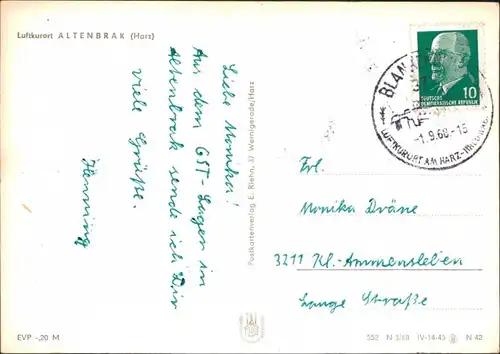 Luftkurort ALTENBRAK (Harz)
Liebe Monika!
Aus dem GST-Lager in
Altenbrak sende ich Dir
viele Grüße.
Henning
Postkartenverlag E. Riehn, 37 Wernigerode/Harz
DEUTSCHE
DEMOKRATISCHE REPUBLIK
10
BLAN
-1.9.68.-15
LUFTKURORT AM HARZ
Frl.
Monika Dräne
3211 Kl.-Ammensleben
Lange Straße
EVP -,20 M
552 N 3/68 IV-14-45 N 42